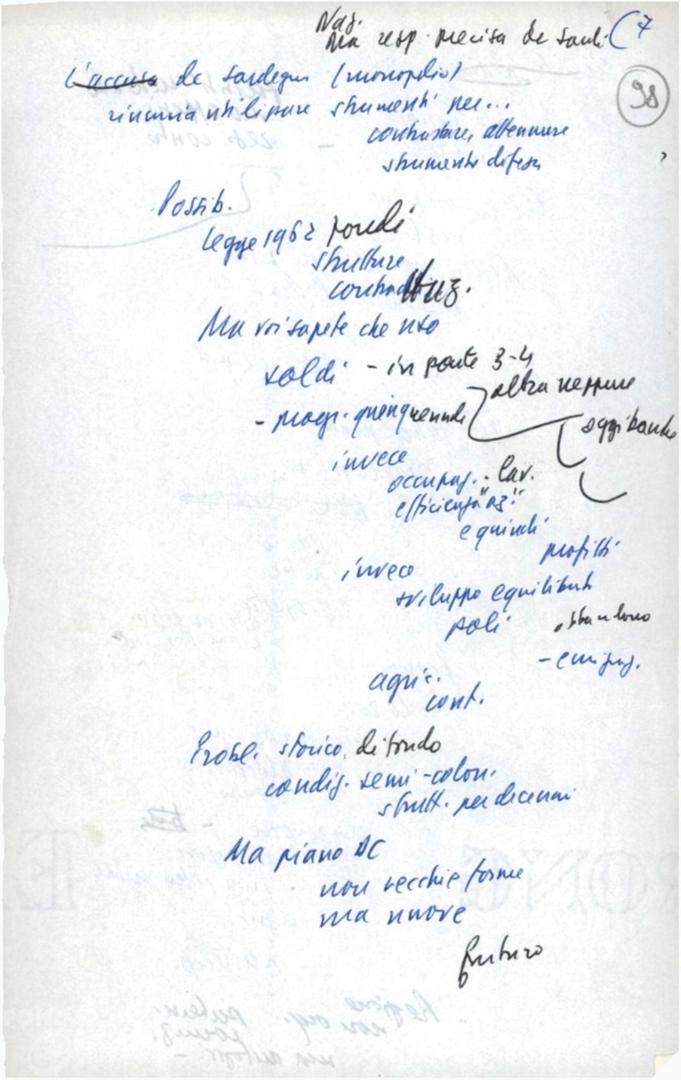 Naz.
Ma resp. precisa dc sardi (7
98
L'accusa dc Sardegna (monopolio)
rinuncia utilizzare strumenti per...
contrastare, attenuare
strumento difesa
Possib.
Legge 1962 fondi
strutture
Ma voi sapete che uso
soldi - in parte 3-4
altra neppure
- progr. quinquennale
oggi banche
invece
occupaz. - lav.
efficienza "az."
e quindi
profitti
invece
sviluppo equilibrato
poli
abbandono
- emigraz.
agric.
cont.
Probl. storico, di fondo
condiz. semi-colon.
strutt. per decenni
Ma piano DC
non vecchie forme
ma nuove
futuro